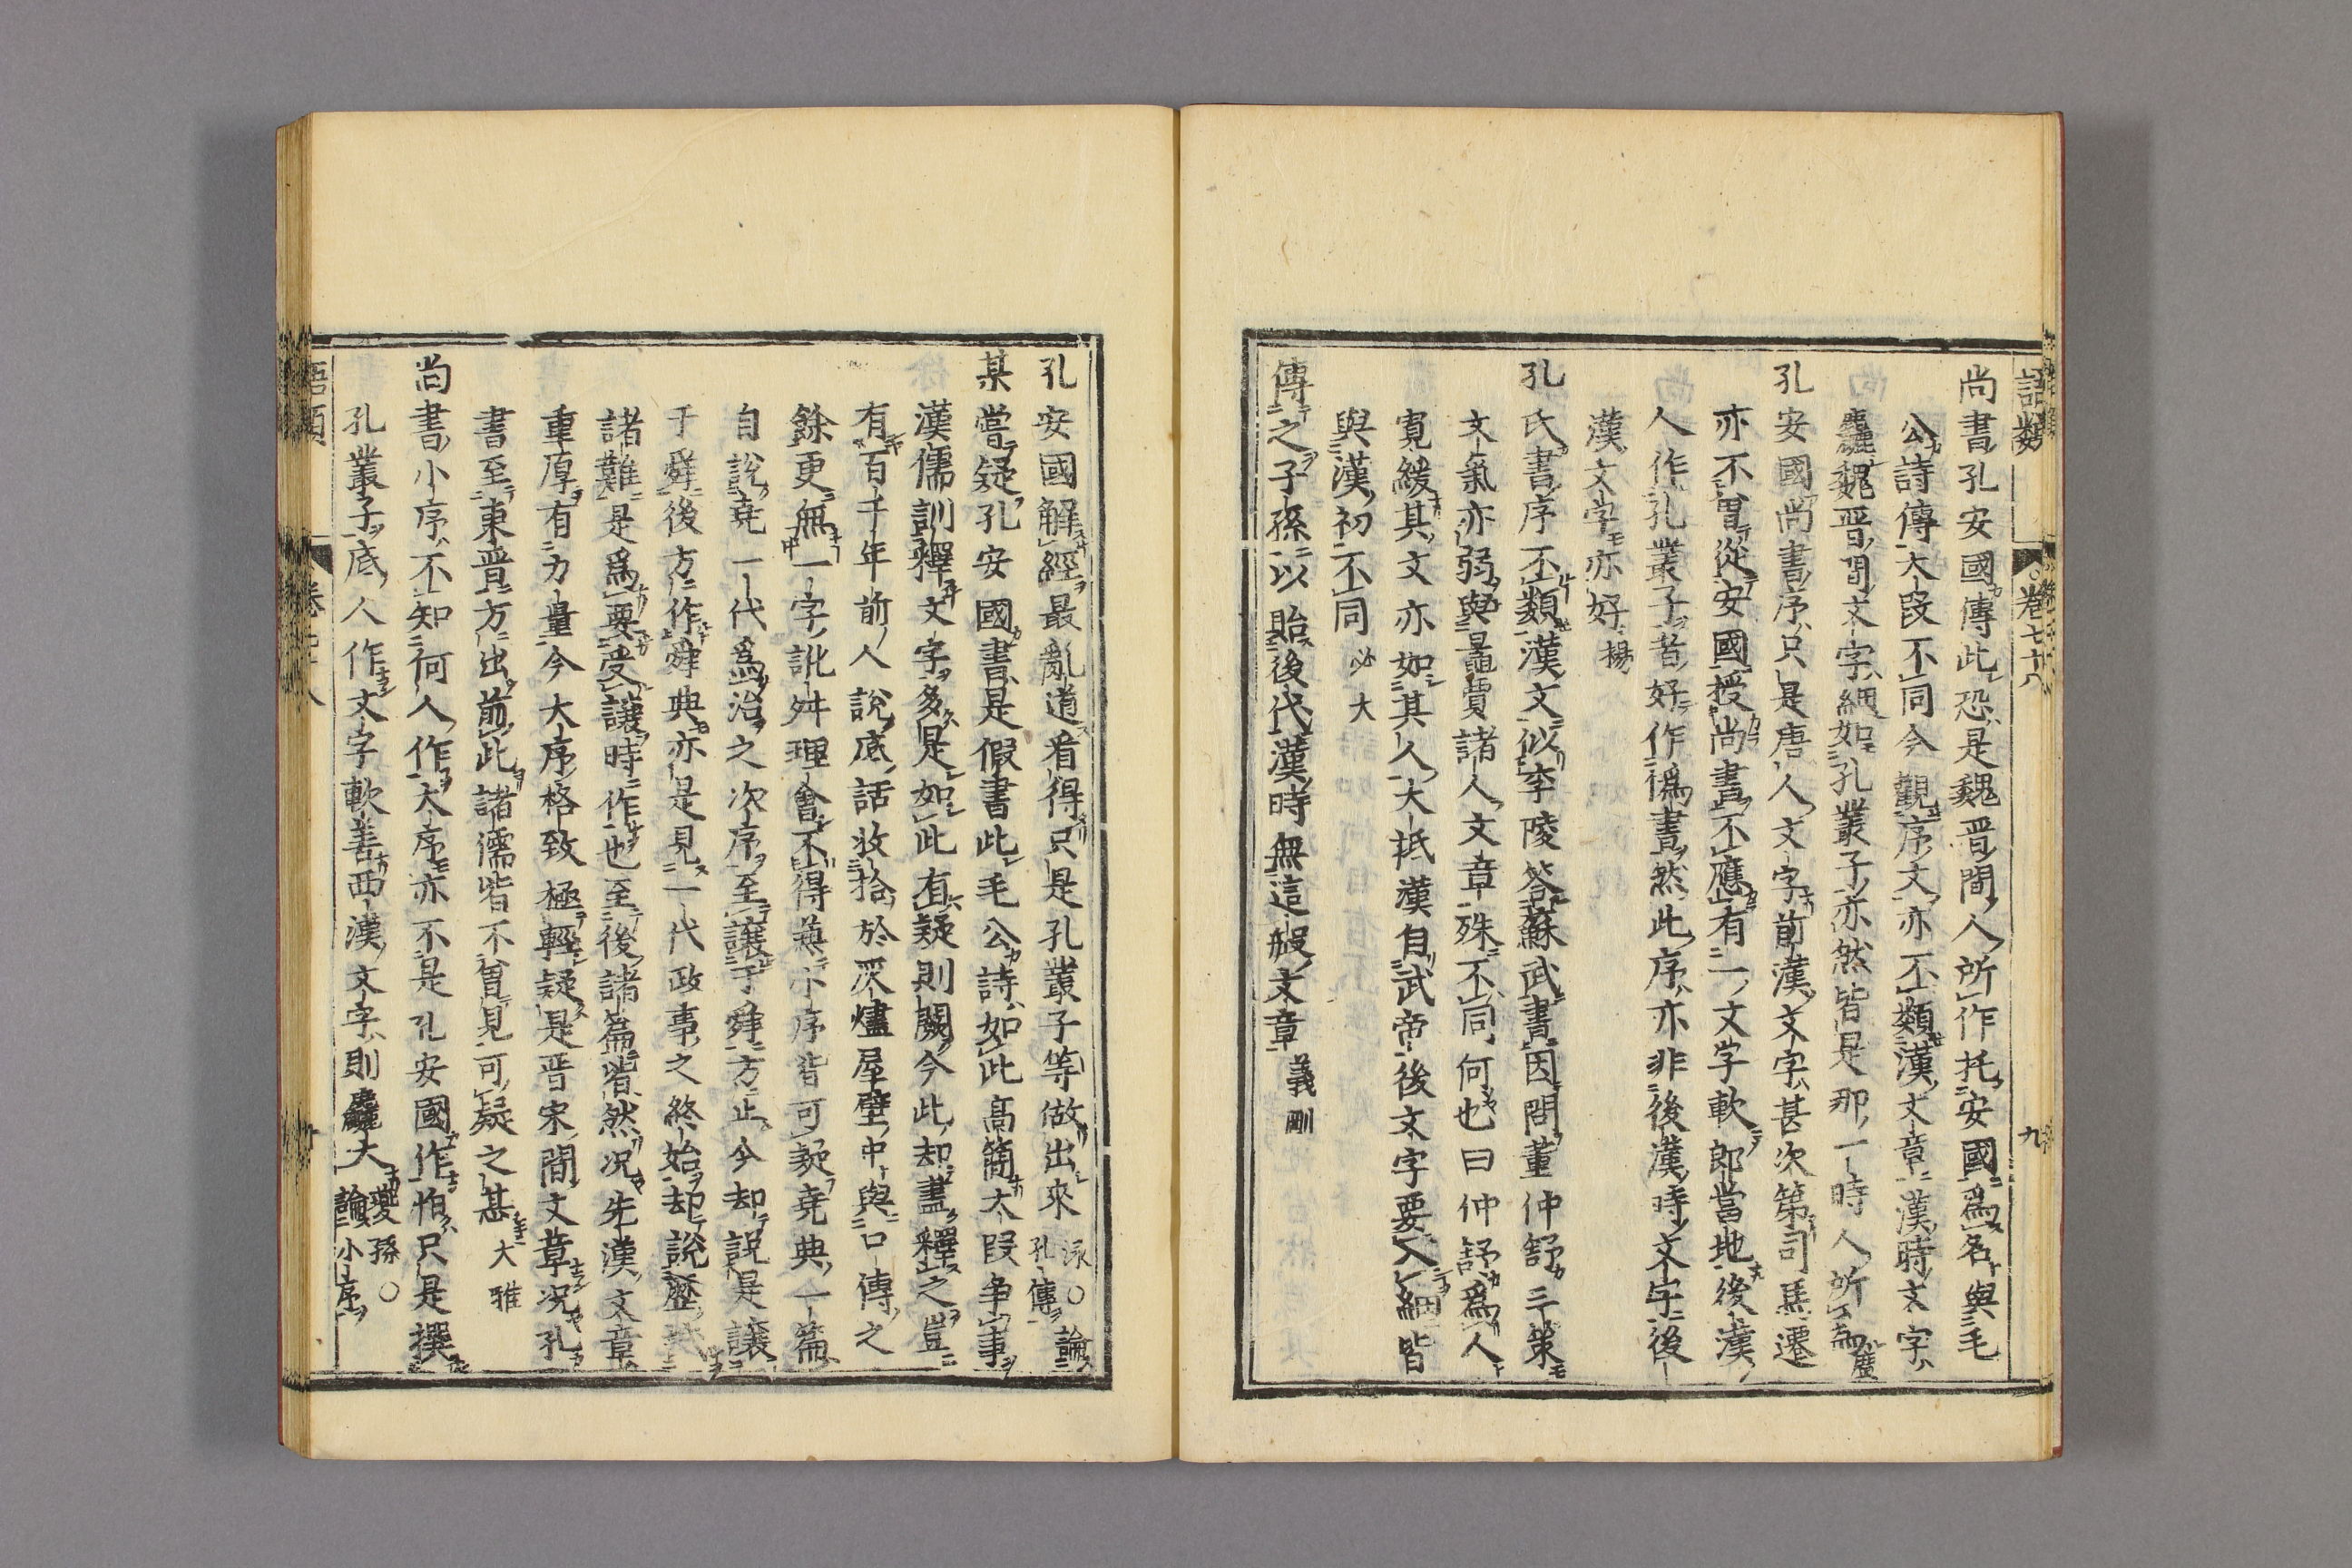 語類
卷七十八
九
尚書孔安國傳此恐是魏晋間人所作托安國爲名與毛
公詩傳大段不同今觀序文亦不類漢文章漢時文字
麤魏晋間文字細如孔叢子亦然皆是那一時人所爲廣
孔安國尚書序只是唐人文字前漢文字甚次第司馬遷
亦不曽從安國授尚書不應有一文字軟郎當地後漢
人作孔叢子者好作僞書然此序亦非後漢時文字後
漢文字亦好揚
孔氏書序不類漢文似李陵答蘇武書因問董仲舒三策
文氣亦弱與鼂賈諸人文章殊不同何也曰仲舒爲人
寛緩其文亦如其人大抵漢自武帝後文字要入細皆
與漢初不同必大
傳之子孫以貽後代漢時無這般文章義剛
孔安國解經最亂道看得只是孔叢子等做出來泳○論孔傳
某嘗疑孔安國書是假書此毛公詩如此高簡大段争事
漢儒訓釋文字多是如此有疑則闕今此却盡釋之豈
有百千年前人說底話收拾於灰燼屋壁中與口傳之
餘更無一字訛舛理會不得兼小序皆可疑堯典一篇
自說堯一代爲治之次序至讓于舜方止今却說是讓
于舜後方作舜典亦是見一代政事之終始却說歷試
諸難是爲要受讓時作也至後諸篇皆然况先漢文章
重厚有力量今大序格致極輕疑是晋宋間文章况孔
書至東晋方出前此諸儒皆不曽見可疑之甚大雅
尚書小序不知何人作大序亦不是孔安國作怕只是撰
孔叢子底人作文字軟善西漢文字則麤大夔孫○論小序
語類